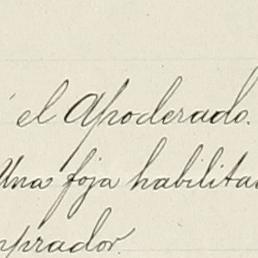 el Apoderado.
Una foja habilita
mprador.